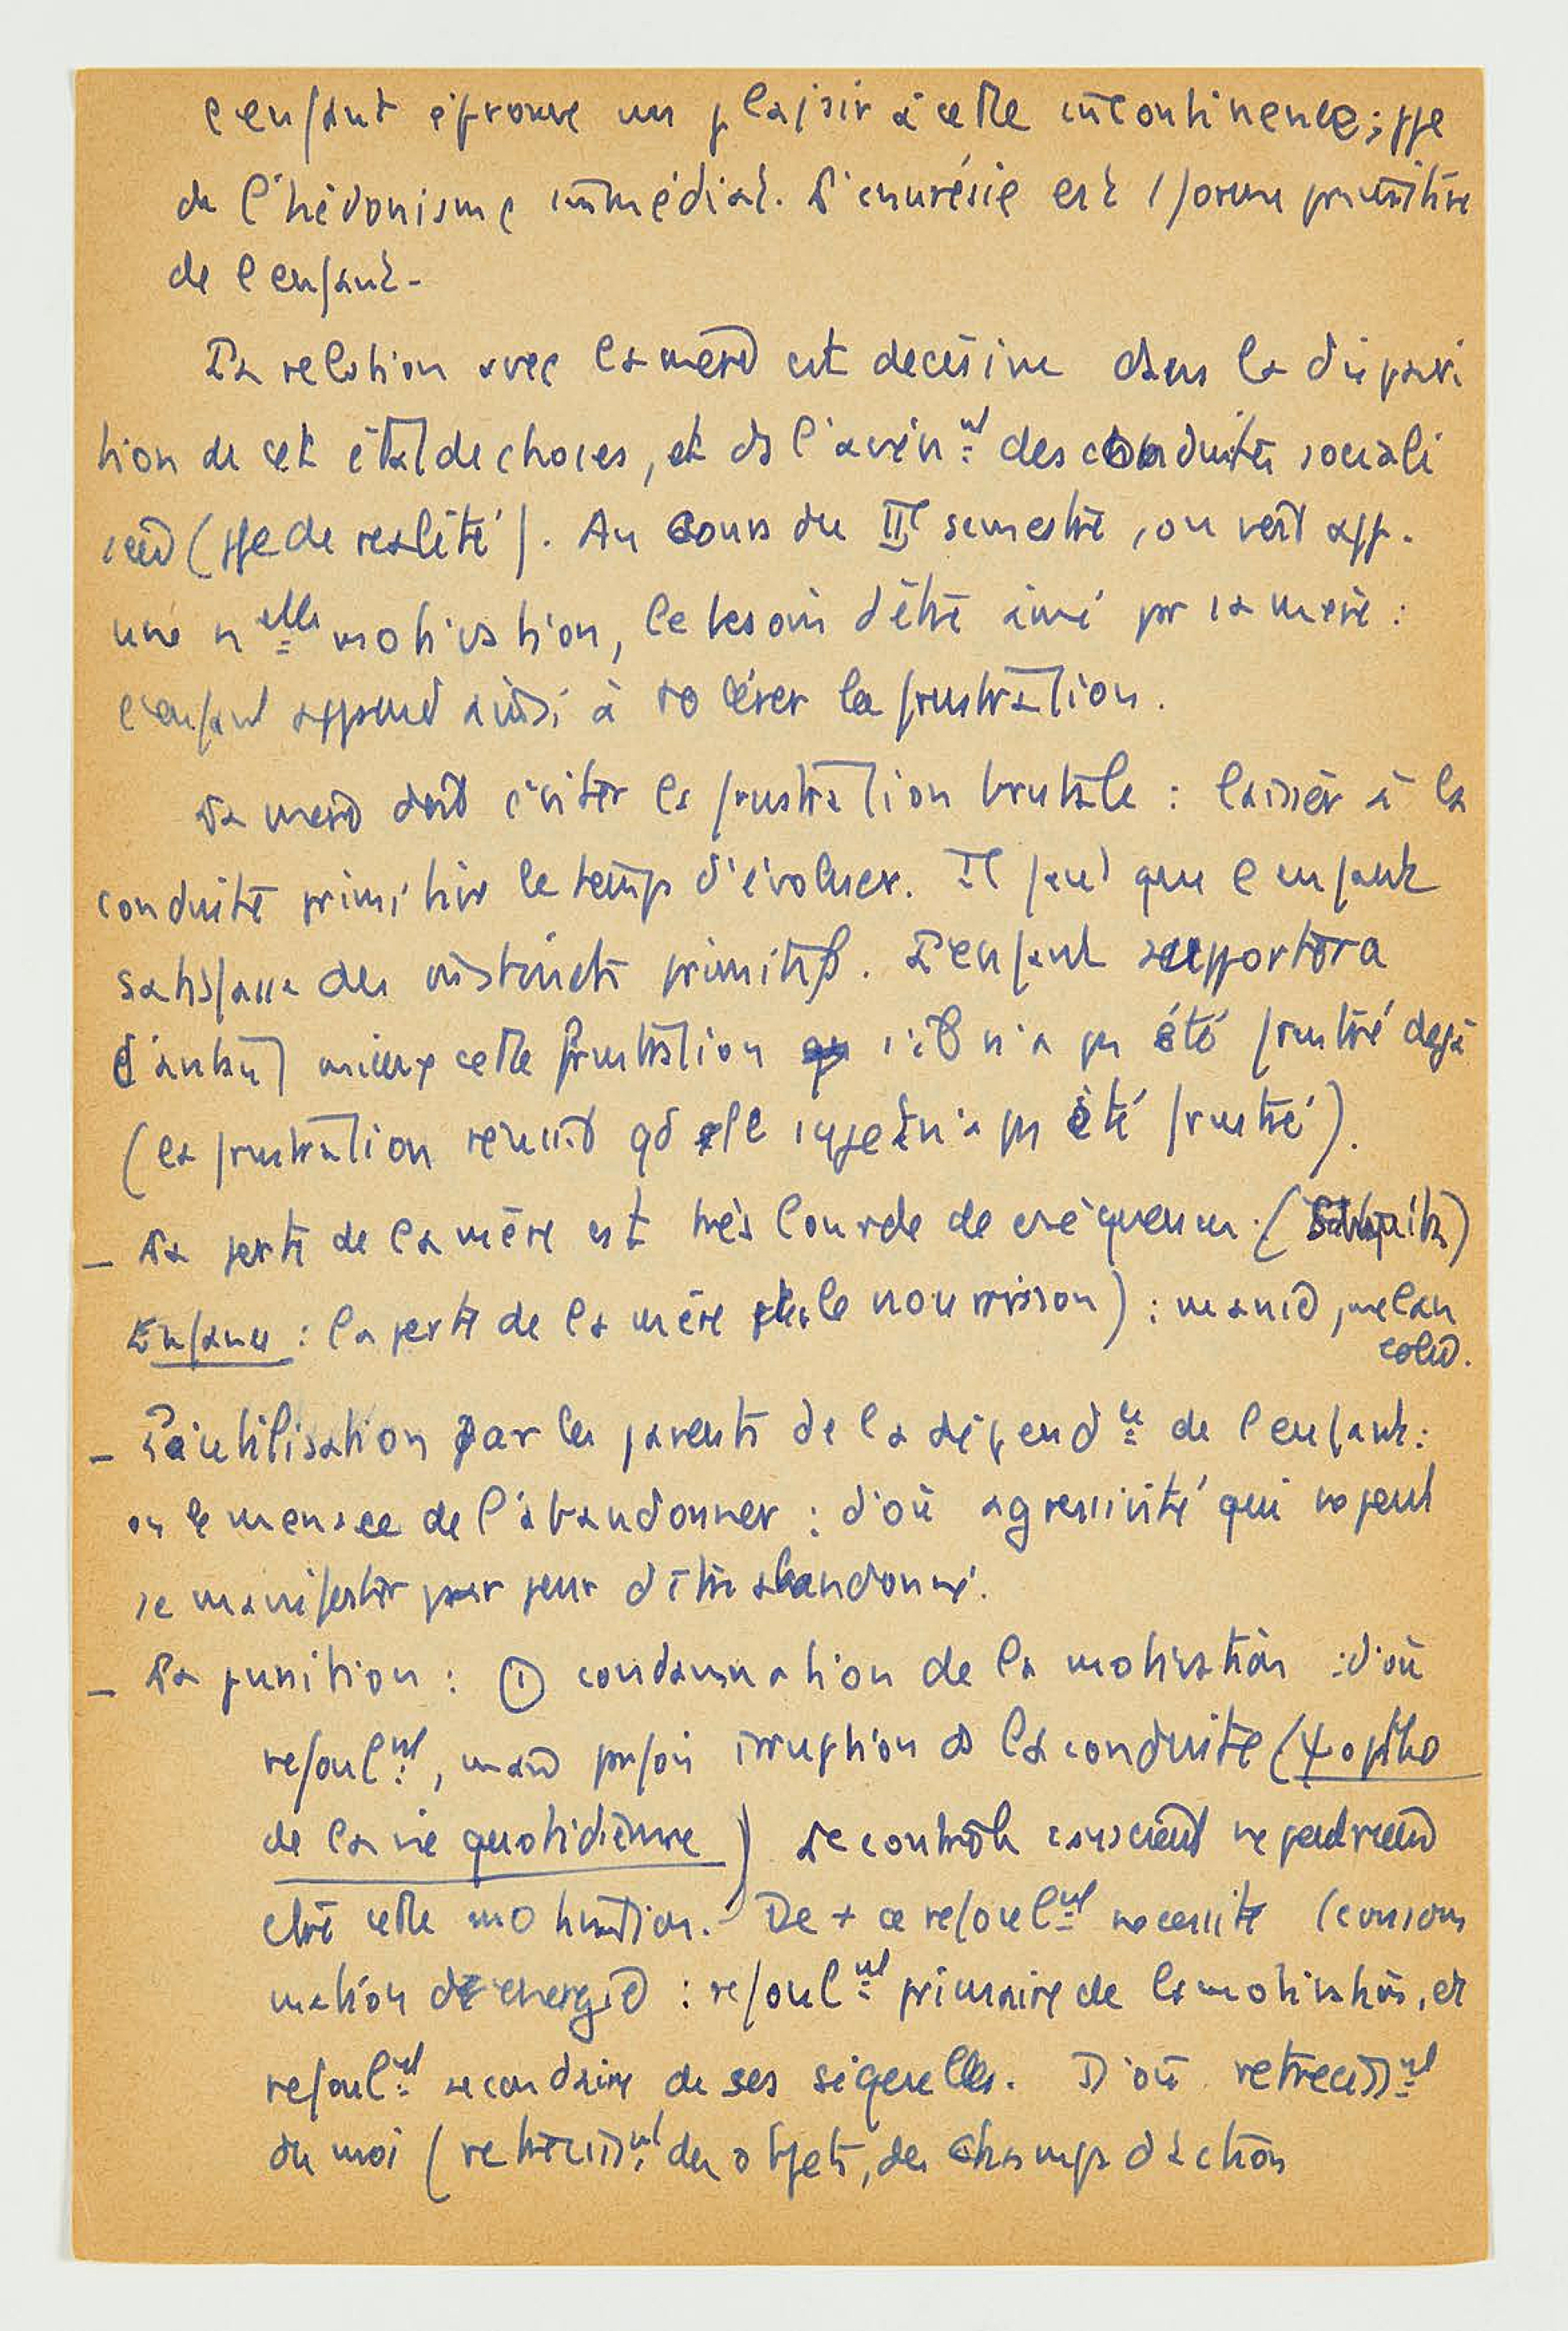 l'enfant éprouve un plaisir à cette incontinence ; ppe
de l'hédonisme immédiat. L'énurésie est 1 forme primitive
de l'enfant.
La relation avec la mère est décisive dans la dispari
tion de cet état de choses, et ds l'avèn^nt des conduites sociali
sées (ppe de réalité). Au cours du II^e semestre, on voit app.
une n^elle motivation, le besoin d'être aimé par sa mère :
l'enfant apprend ainsi à tolérer la frustration.
La mère doit éviter la frustration brutale : laisser à la
conduite primitive le temps d'évoluer. Il faut que l'enfant
satisfasse des instincts primitifs. L'enfant supportera
d'autant mieux cette frustration s'il n'a pas été frustré déjà
(la frustration réussit qd le sujet n'a pas été frustré).
– La perte de la mère est très lourde de conséquences. (
Enfance : la perte de la mère le nourrisson) : manie, mélan
colie.
– L'utilisation par les parents de la dépend^ce de l'enfant :
on le menace de l'abandonner : d'où agressivité qui ne peut
se manifester par peur d'être abandonné.
– La punition : ① condamnation de la motivation : d'où
refoul^nt, mais parfois irruption ds la conduite (ψopatho
de la vie quotidienne) Le contrôle conscient ne peut rien
ctre cette motivation. De + ce refoul^nt nécessite 1 consom
mation d'énergie : refoul^nt primaire de la motivation, et
refoul^nt secondaire de ses séquelles. D'où rétréciss^nt
du moi (rétréciss^nt des objets, des champs d'action